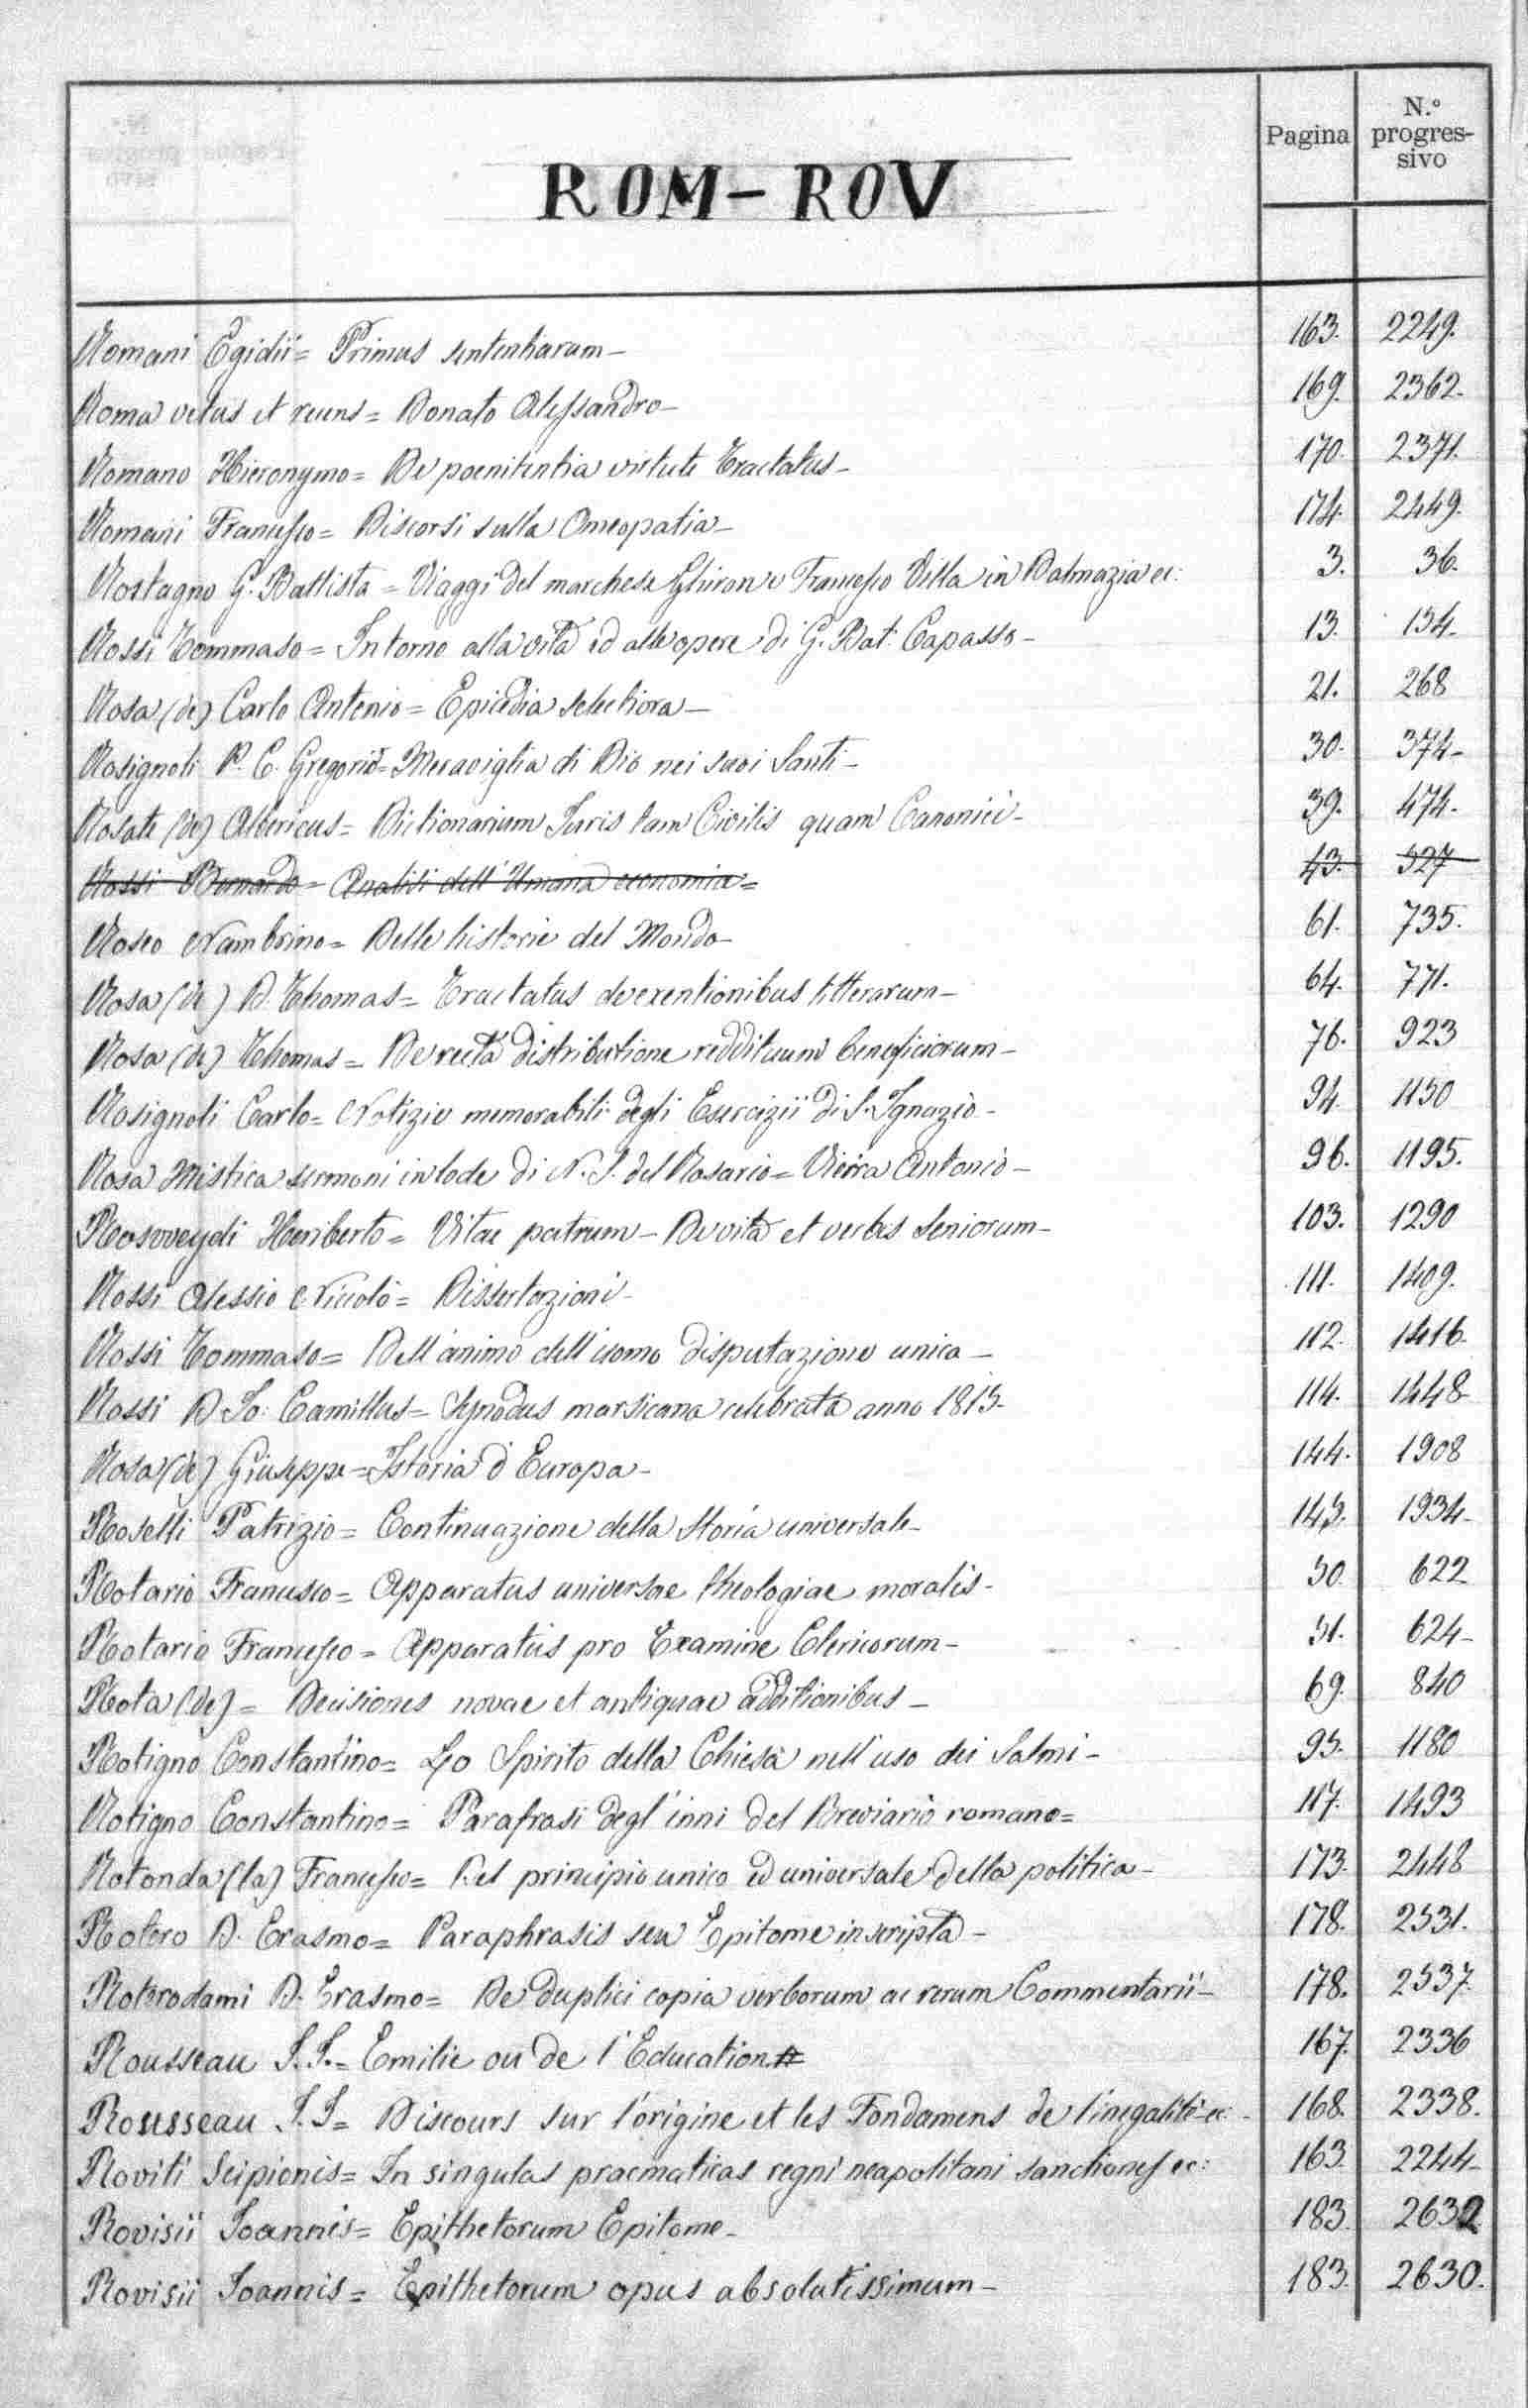 Pagina N.º progres-sivo
ROM-ROV
Romani Egidii= Primus sententiarum- 163. 2249.
Roma vetus et recens= Donato Alessandro- 169. 2362.
Romano Hieronymo= De poenitentia virtute Tractatus- 170. 2371.
Romani Francesco= Discorsi sulla Omeopatia- 174. 2449.
Rostagno G. Battista= Viaggi del marchese Ghiron e Francesco Villa in Dalmazia ec: 3. 36.
Rossi Tommaso= Intorno alla vita ed alle opere di G. Bat: Capasso- 13. 134.
Rosa (de) Carlo Antonio= Epicedia selectiora- 21. 268
Rosignoli P. C. Gregorio= Meraviglia di Dio nei suoi Santi- 30. 374-
Rosate (de) Albericus= Dictionarium Juris tam Civilis quam Canonici- 39. 474.
Rossi Bernardo- Analisi dell'Umana economia= 43. 527
Roseo Nambrino= Delle historie del Mondo- 61. 735.
Rosa (de) D. Thomas= Tractatus de exentionibus litterarum- 64. 771.
Rosa (de) Thomas= De recta distributione reddituum beneficiorum- 76. 923
Rosignoli Carlo= Notizie memorabili degli Esercizii di S. Ignazio- 94. 1150
Rosa Mistica sermoni in lode di N. S. del Rosario= Vieira Antonio- 96. 1195.
Rosvveydi Heriberto= Vitae patrum- De vita et verbis Seniorum- 103. 1290
Rossi Alessio Niccolò= Dissertazioni- 111. 1409.
Rossi Tommaso= Dell'animo dell'uomo disputazione unica- 112. 1416.
Rossi D. Io: Camillus= Synodus marsicana celebrata anno 1815- 114. 1448-
Rosa (de) Giuseppe= Istoria d'Europa- 144. 1908
Roselli Patrizio= Continuazione della Storia universale- 145. 1934-
Rotario Francesco= Apparatus universae theologiae moralis- 50. 622
Rotario Francesco= Apparatus pro Examine Clericorum- 51. 624-
Rota (de)= Decisiones novae et antiquae additionibus- 69. 840
Rotigno Constantino= Lo Spirito della Chiesa nell'uso dei Salmi- 95. 1180
Rotigno Constantino= Parafrasi degl'inni del Breviario romano= 117. 1493
Rotonda (la) Francesco= Del principio unico ed universale della politica- 173. 2448
Rotero D. Erasmo= Paraphrasis seu Epitome inscripta- 178. 2531.
Roterodami D. Erasmo= De duplici copia verborum ac rerum Commentarii- 178. 2537.
Rousseau J. J.= Emilie ou de l'Education 167. 2336
Rousseau J. J= Discours sur l'origine et les Fondamens de l'inegalité ec- 168. 2338.
Roviti Scipionis= In singulas pracmaticas regni neapolitani sanctiones ec: 163. 2244-
Rovisii Joannis= Epithetorum Epitome- 183. 2632
Rovisii Joannis= Epithetorum opus absolutissimum- 183. 2630.